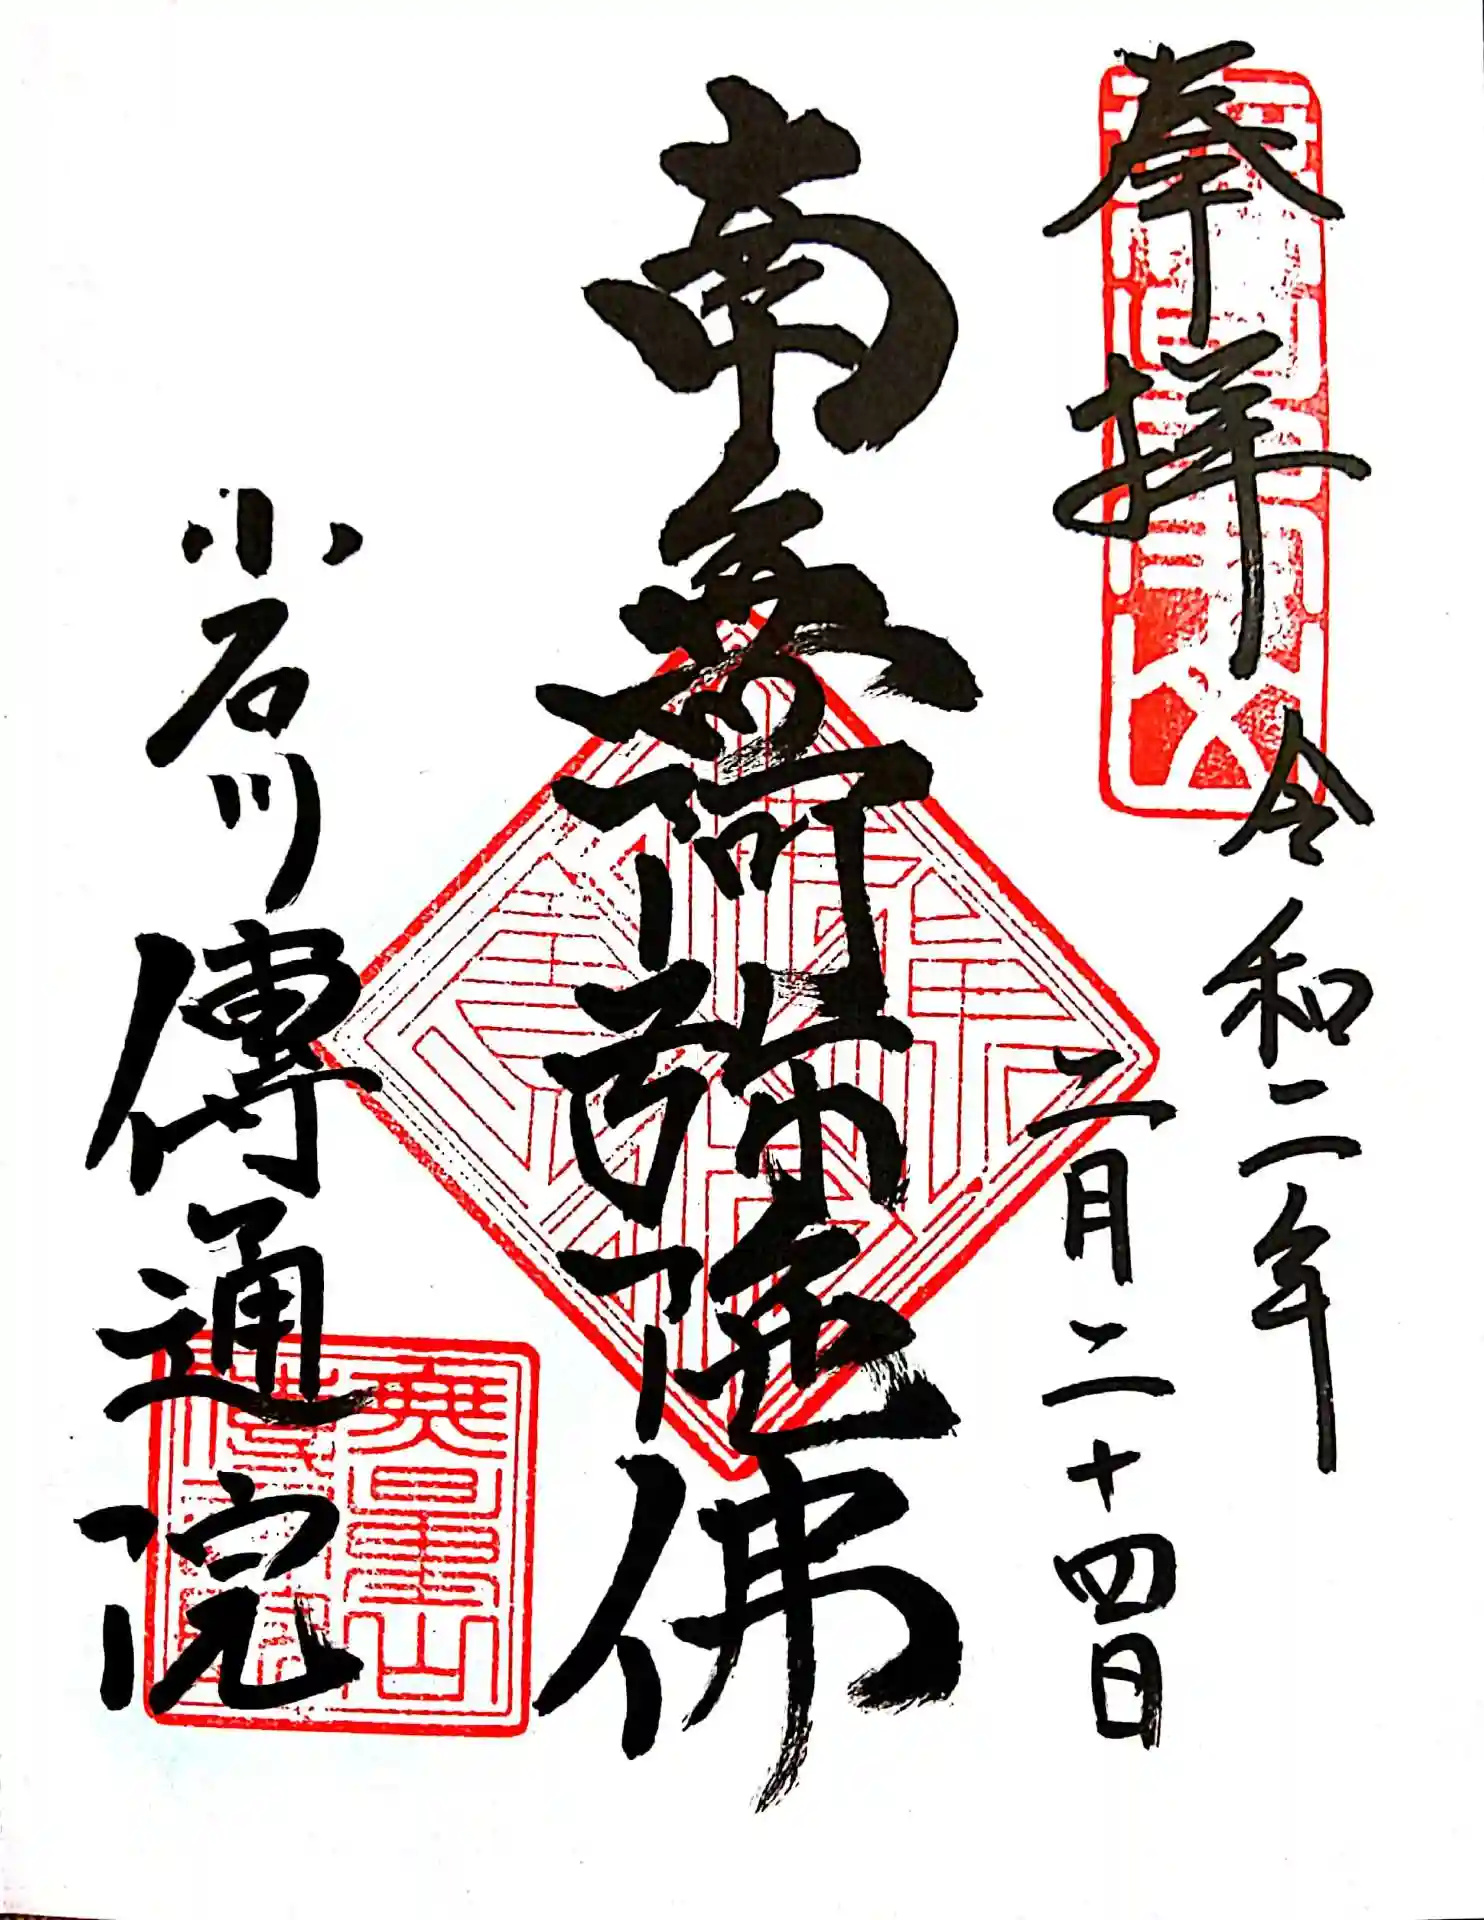 奉拝
令和二年
二月二十四日
南無阿弥陀佛
小石川傳通院
無量山